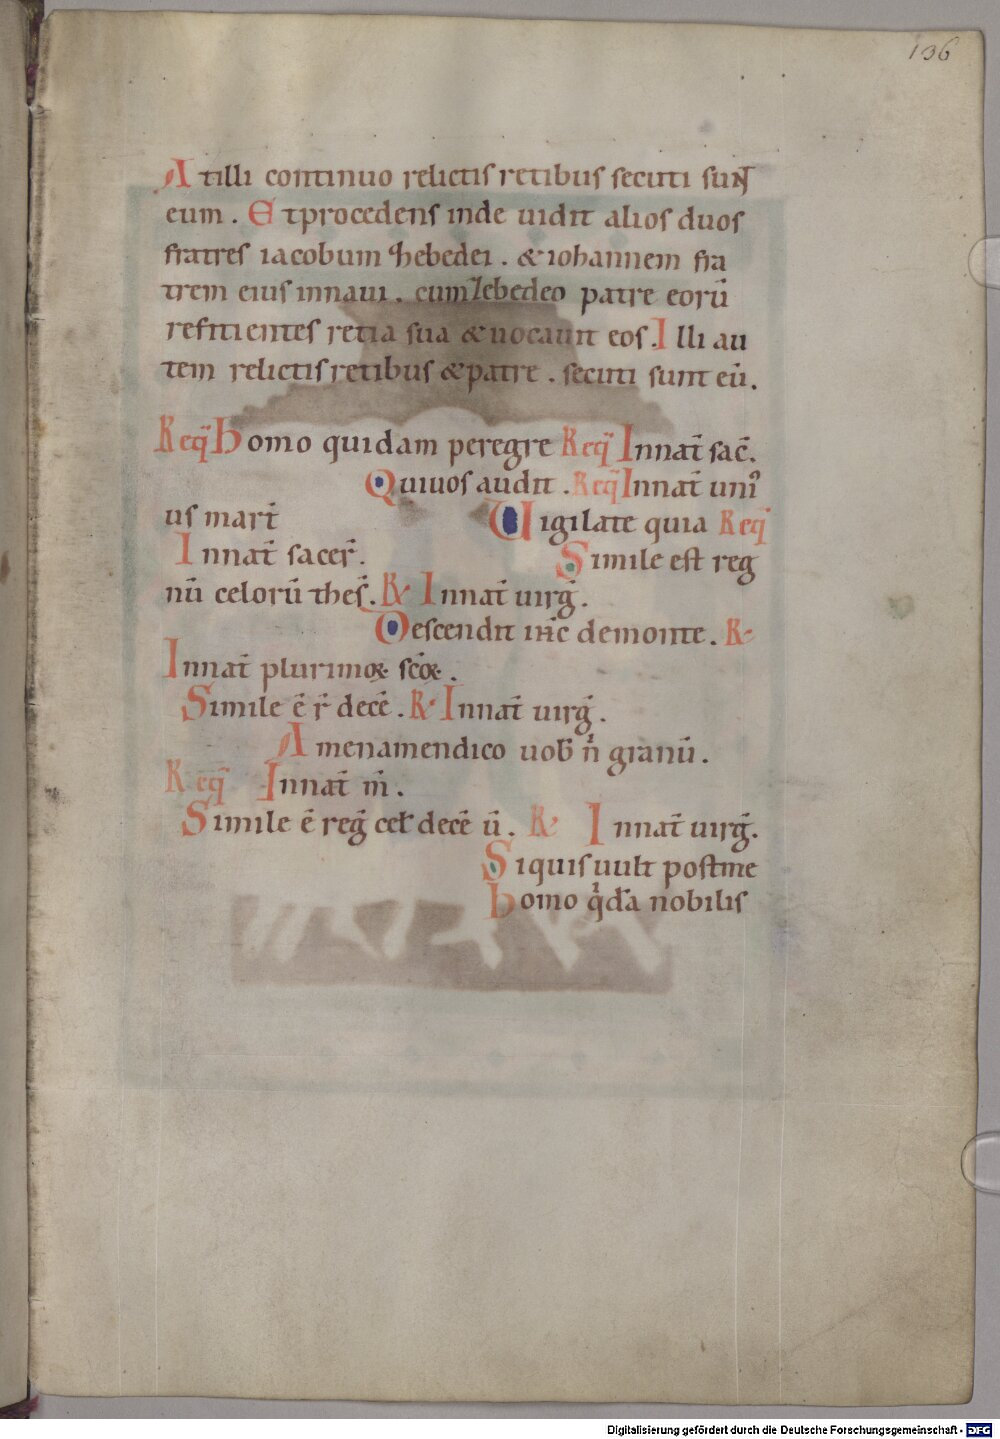 136
At illi continuo relictis retibus secuti sunt
eum . Et procedens inde uidit alios duos
fratres iacobum zhebedei . & iohannem fra
trem eius in naui . cum zebedeo patre eorū
reficientes retia sua & uocauit eos . Illi au
tem relictis retibus & patre . secuti sunt eū .
Req̄ Homo quidam peregre Req̄ In nat̄ sac̄ .
Qui uos audit . Req̄ In nat̄ uni⁹
us mart̄
Uigilate quia Req̄
In nat̄ sacer̄ .
Simile est reg
nū celorū thes̄ . R& In nat̄ uirḡ .
Descendit ih̄c de monte . R&
In nat̄ plurimoꝝ sc̄oꝝ .
Simile ē r̄ decē . R& In nat̄ uirḡ .
Amen amen dico uob̄ n̄ granū .
Req̄ In nat̄ m̄ .
Simile ē reḡ cel̄ decē ū . R& In nat̄ uirḡ .
Si quis uult post me
Homo q̄dā nobilis
Digitalisierung gefördert durch die Deutsche Forschungsgemeinschaft - DFG